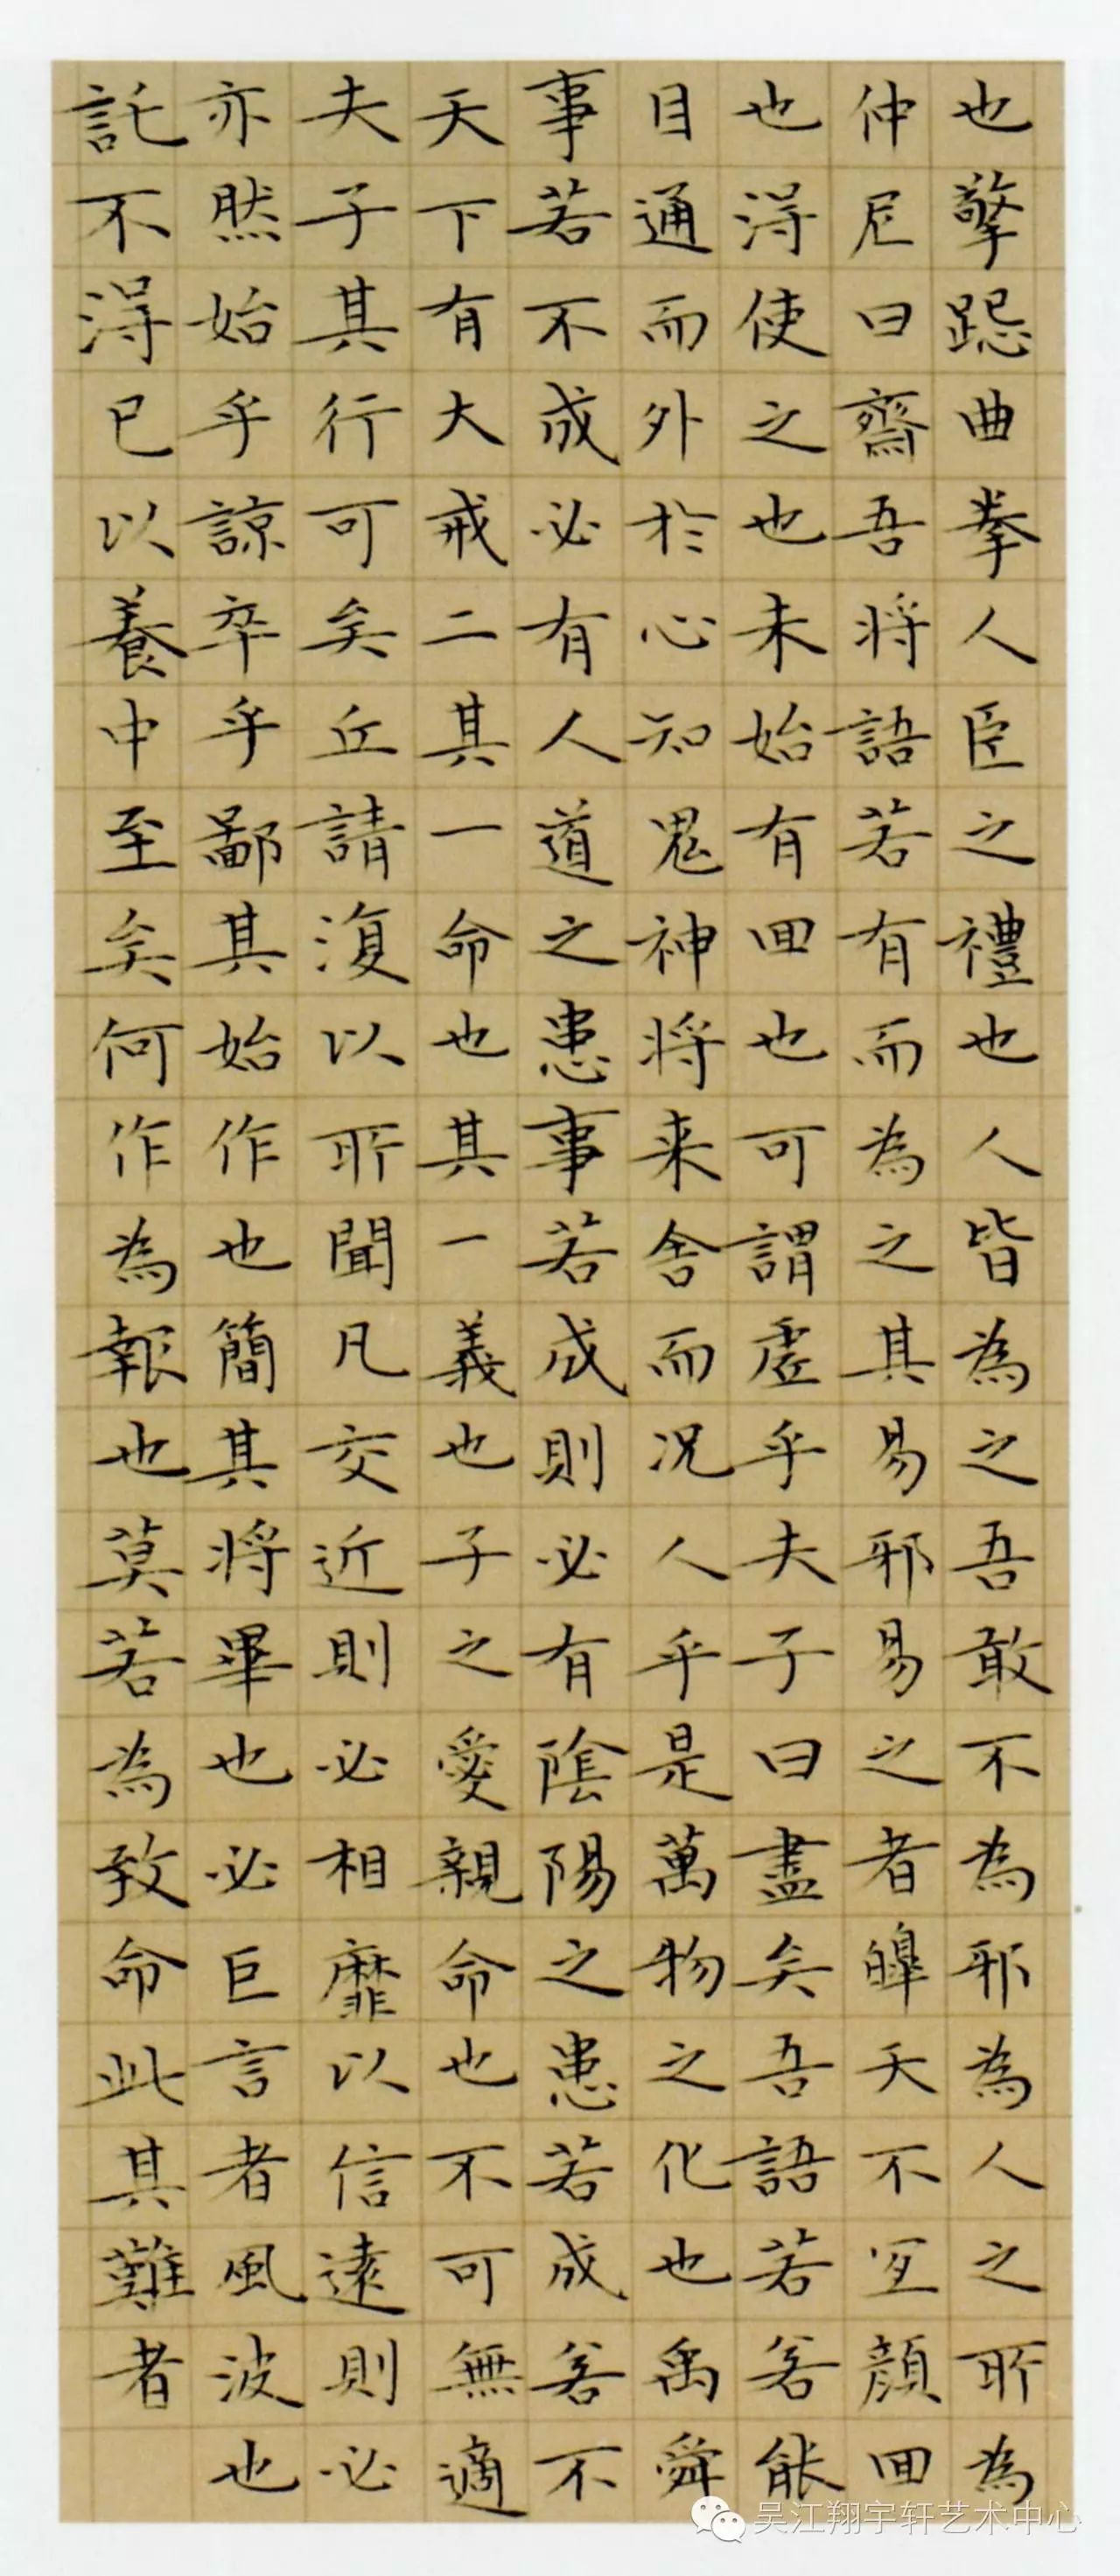 也擎跽曲拳人臣之禮也人皆為之吾敢不為邪為人之所為
仲尼曰齋吾將語若有而為之其易邪易之者皞天不宜顏回
也得使之也未始有回也可謂虛乎夫子曰盡矣吾語若若能
目通而外於心知鬼神將来舍而况人乎是萬物之化也禹舜
事若不成必有人道之患事若成則必有陰陽之患若成若不
天下有大戒二其一命也其一義也子之愛親命也不可無適
夫子其行可矣丘請復以所聞凡交近則必相靡以信遠則必
亦然始乎諒卒乎鄙其始作也簡其將畢也必巨言者風波也
託不得已以養中至矣何作為報也莫若為致命此其難者
吴江翔宇轩艺术中心